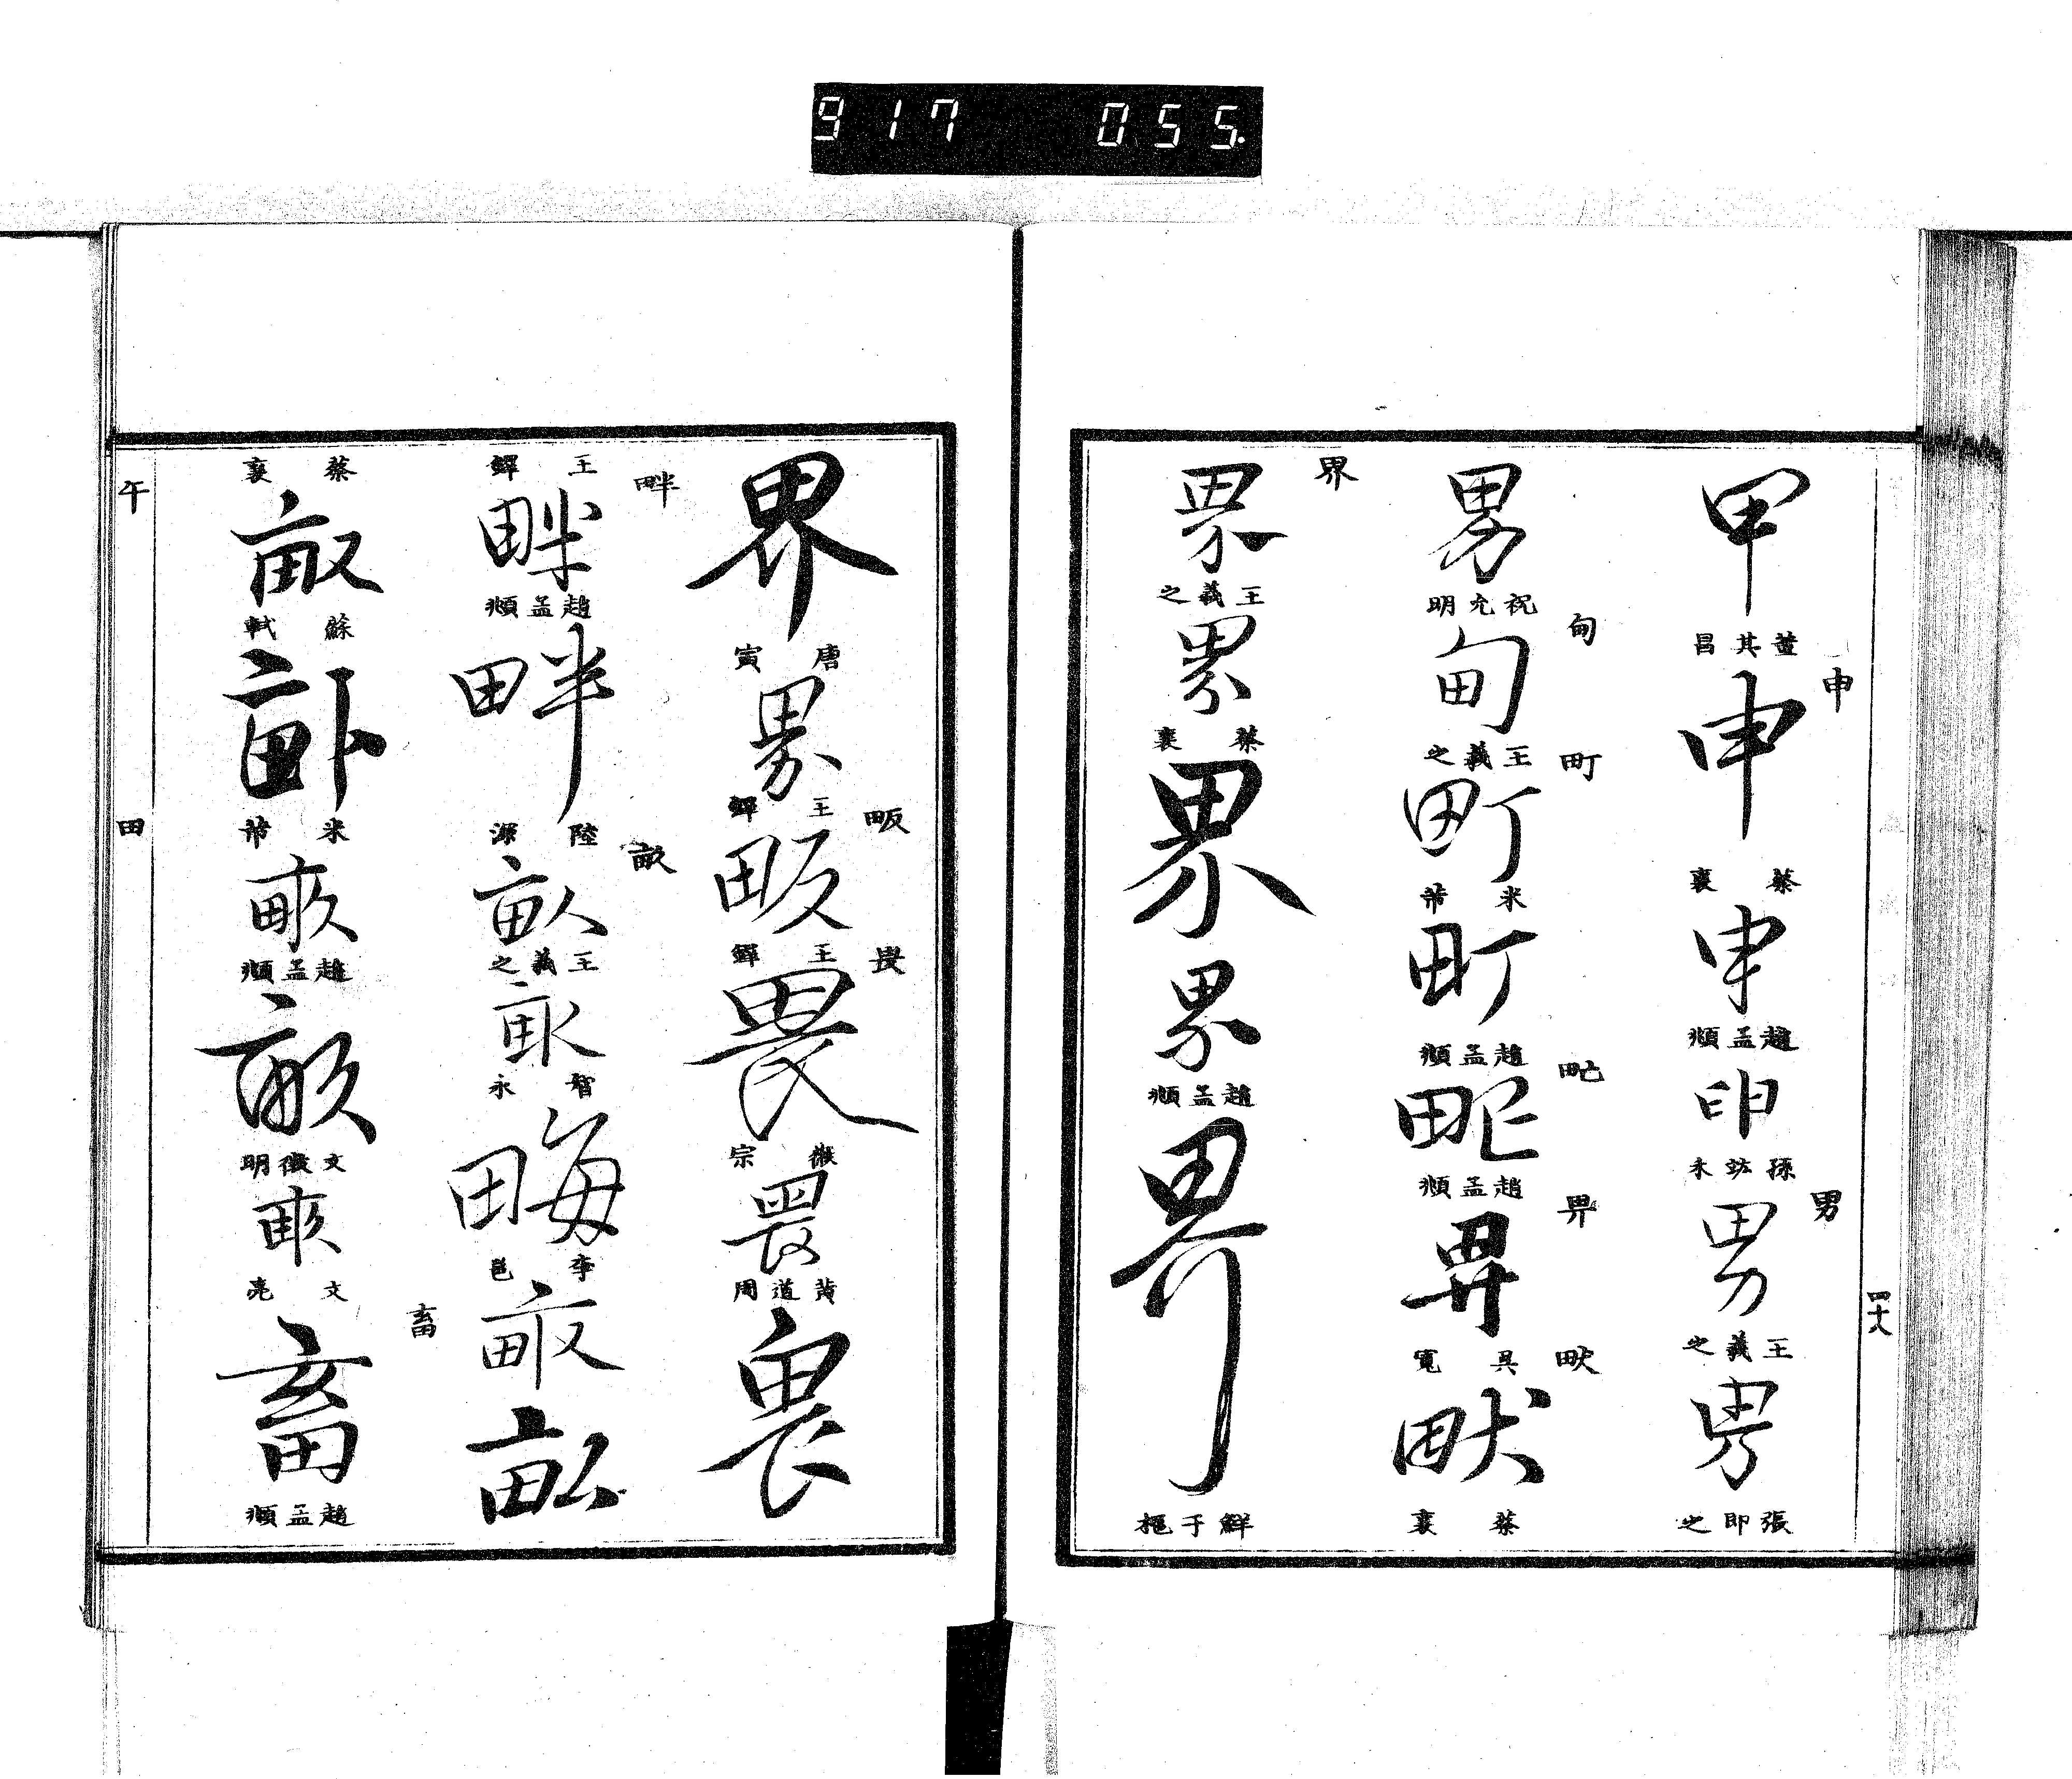 917 055.
甲
董其昌
申
申
蔡襄
申
趙孟頫
印
孫竑禾
男
男
王羲之
男
張即之
四十八
男
祝允明
甸
甸
王羲之
町
町
米芾
町
趙孟頫
甿
甿
趙孟頫
畀
畀
吳寬
畎
畎
蔡襄
界
界
王羲之
界
蔡襄
界
界
趙孟頫
界
鮮于樞
界
唐寅
界
王鐸
畈
畈
王鐸
畏
畏
徽宗
畏
黃道周
畏
畔
王鐸
畔
趙孟頫
畔
陸深
畝
畝
王羲之
畝
智永
畮
李邕
畝
畝
蔡襄
畝
蘇軾
畝
米芾
畝
趙孟頫
畝
文徵明
畝
文彭
畜
畜
趙孟頫
午
田